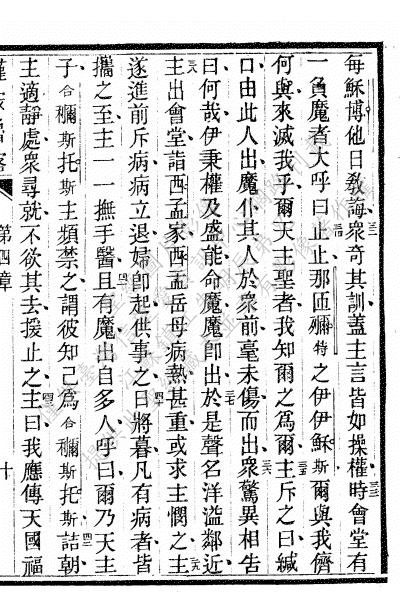 每穌博他日教誨衆奇其訓蓋主言皆如操權時會堂有
一負魔者大呼曰止止那匝彌特之伊伊穌斯爾與我儕
何與來滅我乎爾天主聖者我知爾之爲爾主斥之曰緘
口由此人出魔仆其人於衆前毫未傷而出衆驚異相告
曰何哉伊秉權及盛能命魔魔卽出於是聲名洋溢鄰近
主出會堂詣西孟家西孟岳母病熱甚重或求主憫之主
遂進前斥病病立退婦卽起供事之日將暮凡有病者皆
攜之至主一一撫手醫且有魔出自多人呼曰爾乃天主
子合彌斯托斯主頻禁之謂彼知己爲合彌斯托斯詰朝
主適靜處衆尋就不欲其去援止之主曰我應傳天國福
第四章 十